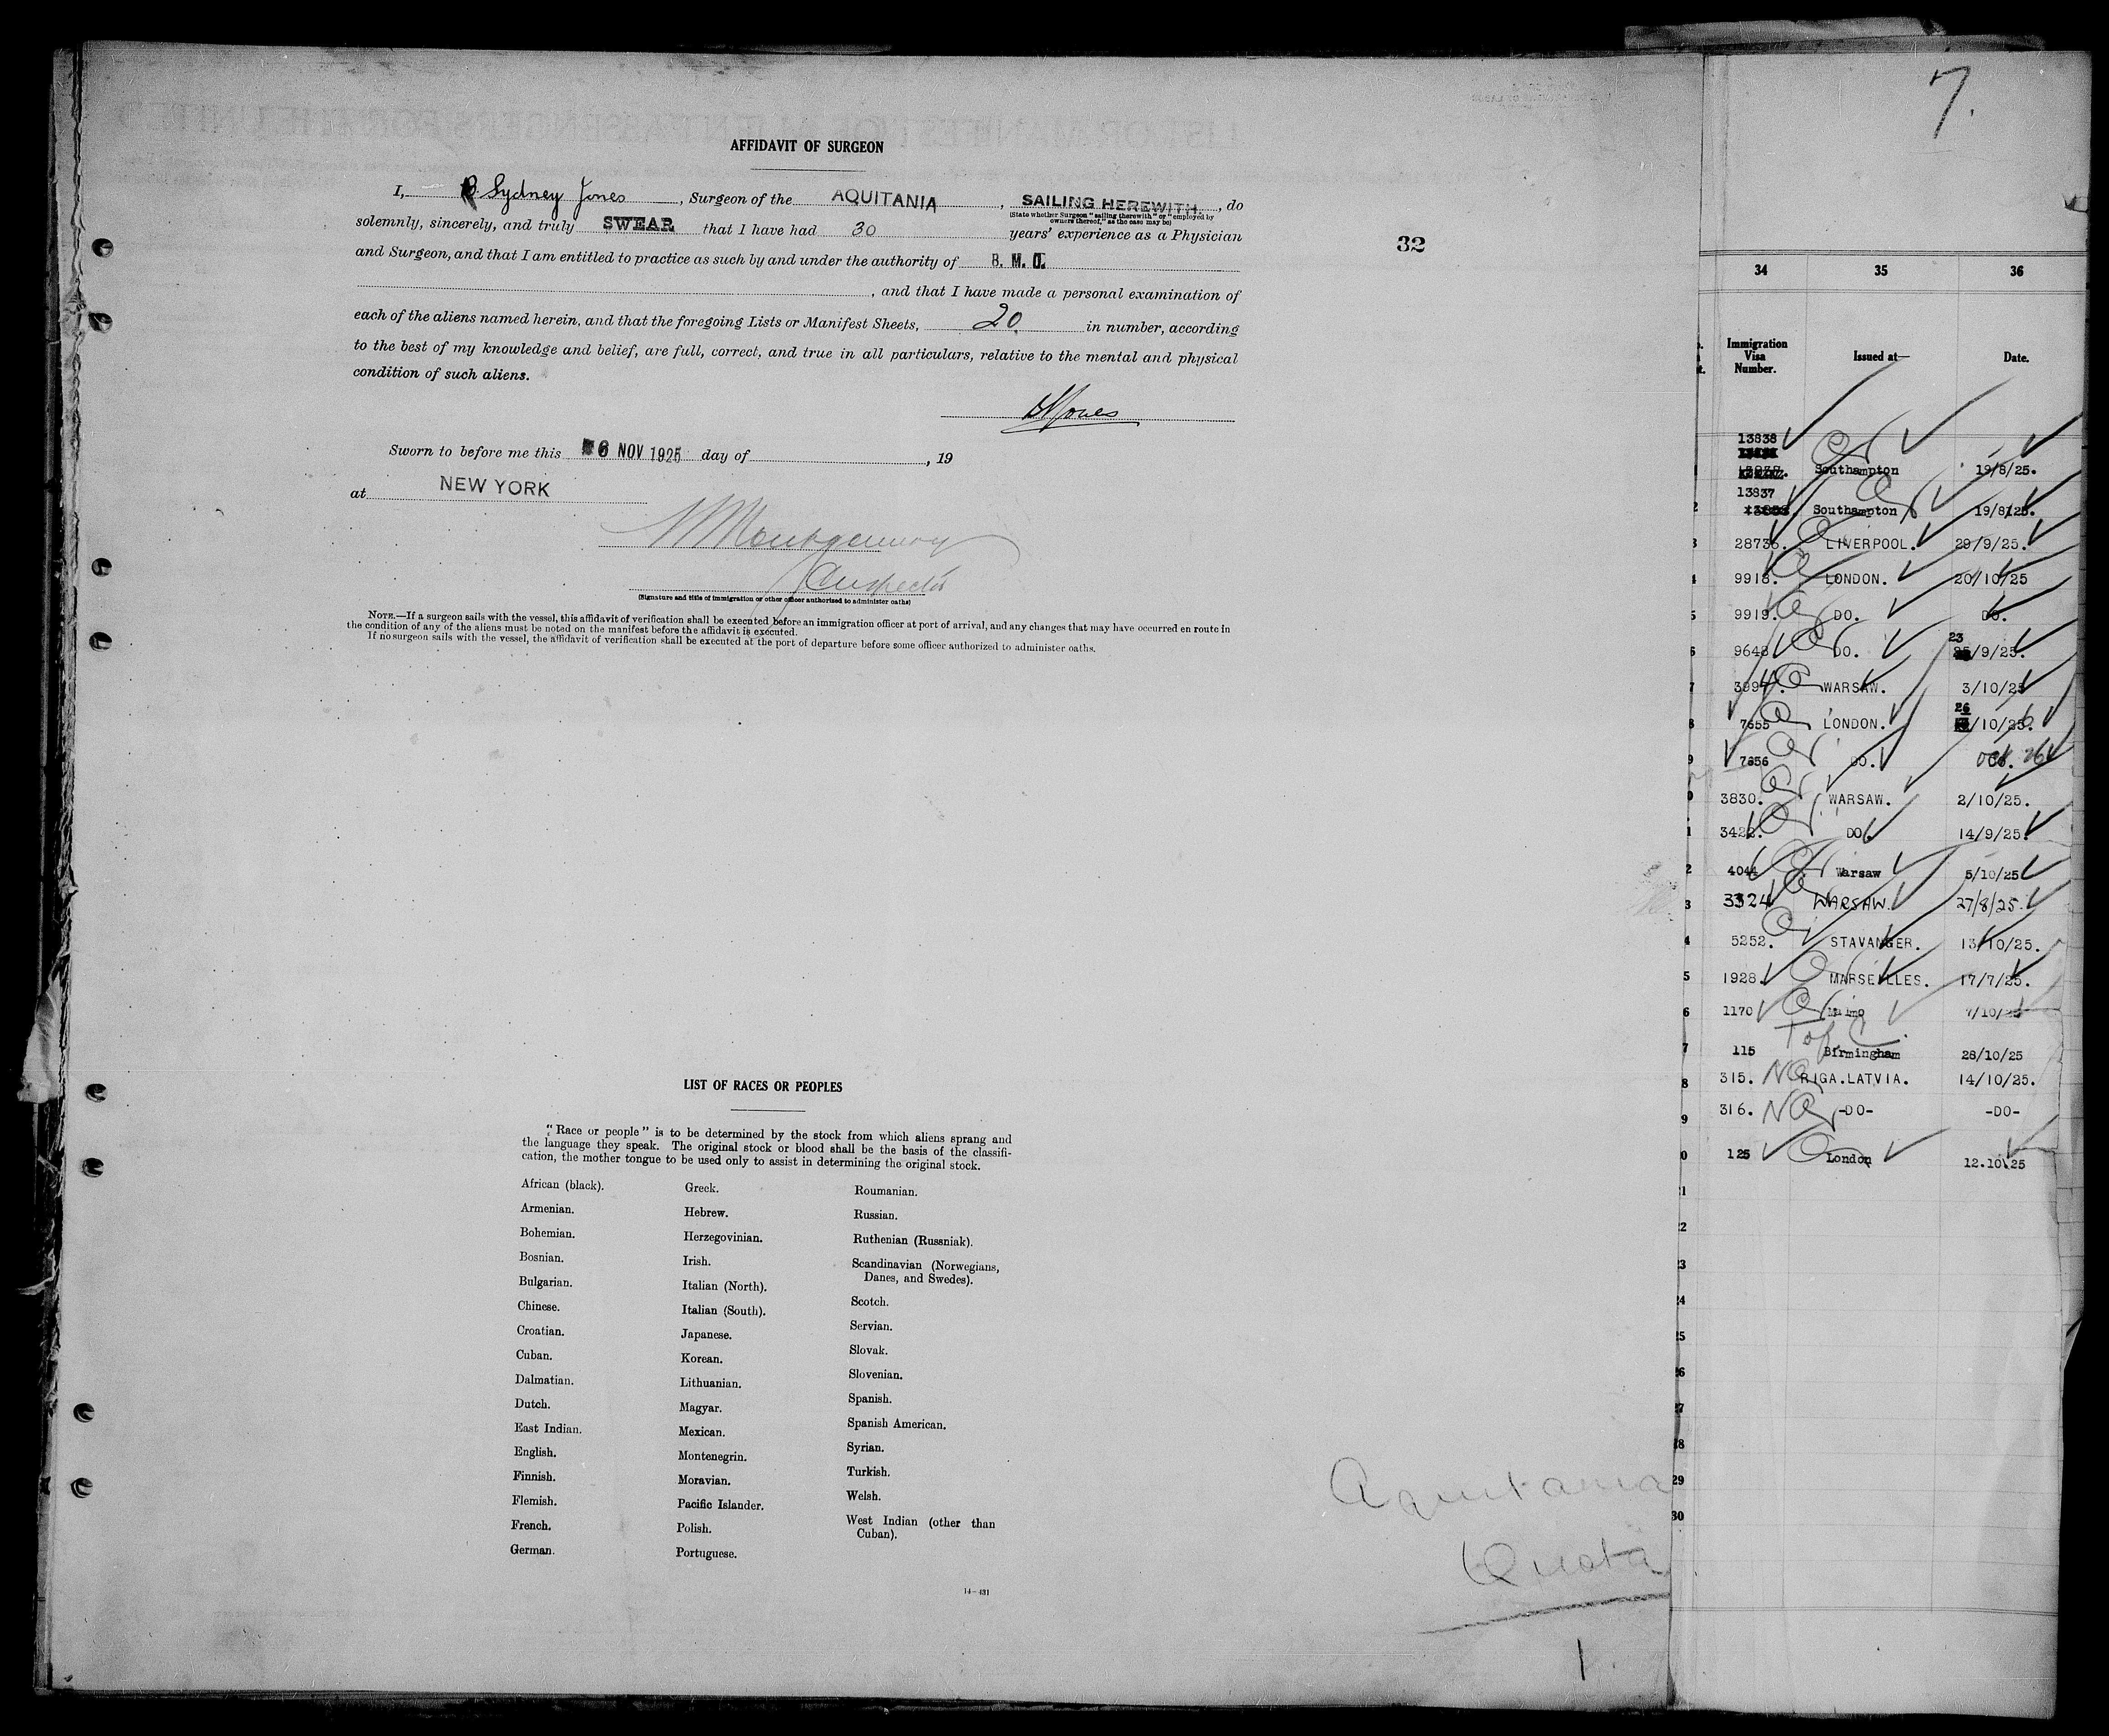 AFFIDAVIT OF SURGEON
I, Sydney Jones, Surgeon of the AQUITANIA, SAILING HEREWITH, do
(State whether Surgeon "sailing therewith" or "employed by
owners thereof," as the case may be)
solemnly, sincerely, and truly SWEAR that I have had 30 years' experience as a Physician
and Surgeon, and that I am entitled to practice as such by and under the authority of B. M. O.
, and that I have made a personal examination of
each of the aliens named herein, and that the foregoing Lists or Manifest Sheets, 20 in number, according
to the best of my knowledge and belief, are full, correct, and true in all particulars, relative to the mental and physical
condition of such aliens.
Jones
Sworn to before me this 6 NOV 1925 day of , 19
at NEW YORK
Montgomery
Inspector
(Signature and title of immigration or other officer authorized to administer oaths)
NOTE.—If a surgeon sails with the vessel, this affidavit of verification shall be executed before an immigration officer at port of arrival, and any changes that may have occurred en route in
the condition of any of the aliens must be noted on the manifest before the affidavit is executed.
If no surgeon sails with the vessel, the affidavit of verification shall be executed at the port of departure before some officer authorized to administer oaths.
32
LIST OF RACES OR PEOPLES
"Race or people" is to be determined by the stock from which aliens sprang and
the language they speak. The original stock or blood shall be the basis of the classifi-
cation, the mother tongue to be used only to assist in determining the original stock.
African (black).
Armenian.
Bohemian.
Bosnian.
Bulgarian.
Chinese.
Croatian.
Cuban.
Dalmatian.
Dutch.
East Indian.
English.
Finnish.
Flemish.
French.
German.
Greek.
Hebrew.
Herzegovinian.
Irish.
Italian (North).
Italian (South).
Japanese.
Korean.
Lithuanian.
Magyar.
Mexican.
Montenegrin.
Moravian.
Pacific Islander.
Polish.
Portuguese.
Roumanian.
Russian.
Ruthenian (Russniak).
Scandinavian (Norwegians,
Danes, and Swedes).
Scotch.
Servian.
Slovak.
Slovenian.
Spanish.
Spanish American.
Syrian.
Turkish.
Welsh.
West Indian (other than
Cuban).
14—431
Aquitania
Quota
1
7.
34 35 36
Immigration
Visa
Number.
Issued at—
Date.
13838
Southampton 19/8/25.
13837
2 Southampton 19/8/25.
3 28736. LIVERPOOL. 29/9/25.
4 9918. LONDON. 20/10/25
5 9919. DO. DO.
23
6 9648 DO. /9/25.
7 3997. WARSAW. 3/10/25
26
8 7655 LONDON. /10/25.
9 7656 DO. Oct. 26
0 3830. WARSAW. 2/10/25.
1 3422. DO. 14/9/25.
2 4044 Warsaw 5/10/25
3 3324 WARSAW. 27/8/25.
4 5252. STAVANGER. 13/10/25.
5 1928. MARSEILLES. 17/7/25.
6 1170 Malmo 7/10/25
7 115 Birmingham 28/10/25
8 315. NQ RIGA.LATVIA. 14/10/25.
9 316. NQ -DO- -DO-
0 125 London 12.10.25
21
22
23
24
25
26
27
28
29
30